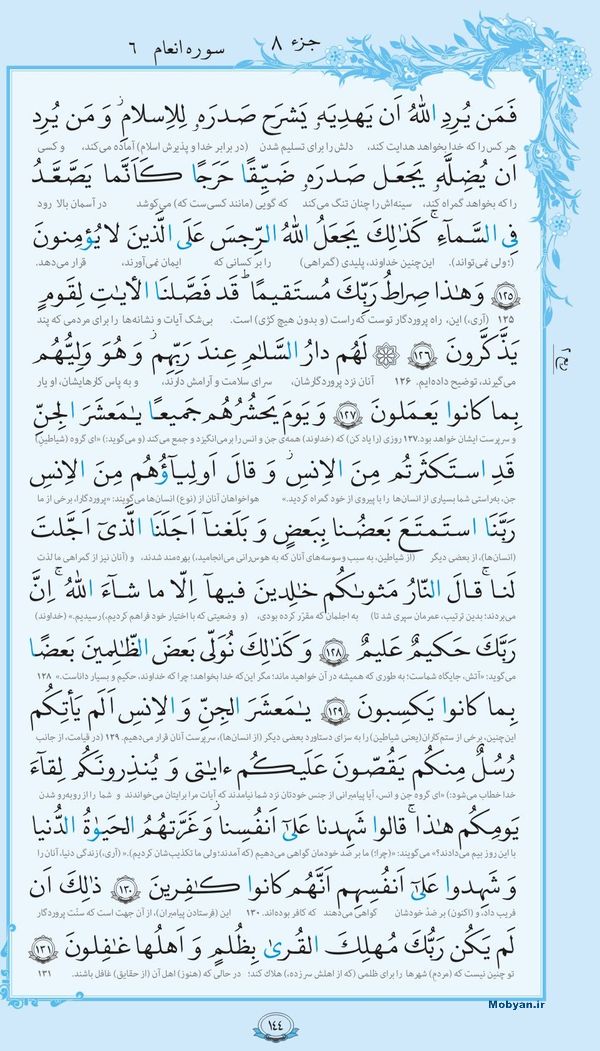 جزء ۸
سوره انعام ۶
فَمَن يُرِدِ اللهُ أَن يَهدِيَهُ يَشرَح صَدرَهُ لِلإِسلامِ ۖ وَ مَن يُرِد
هر کس را که خدا بخواهد هدایت کند، دلش را برای تسلیم شدن (در برابر خدا و پذیرش اسلام) آماده می‌کند، و کسی
أَن يُضِلَّهُ يَجعَل صَدرَهُ ضَيِّقًا حَرَجًا كَأَنَّما يَصَّعَّدُ
را که بخواهد گمراه کند، سینه‌اش را چنان تنگ می‌کند که گویی (مانند کسی‌ست که) می‌کوشد در آسمان بالا رود
فِي السَّماءِ ۚ كَذٰلِكَ يَجعَلُ اللهُ الرِّجسَ عَلَى الَّذينَ لا يُؤمِنونَ
(؛ ولی نمی‌تواند). این‌چنین خداوند، پلیدی (گمراهی) را بر کسانی که ایمان نمی‌آورند، قرار می‌دهد.
۱۲۵ وَ هٰذا صِراطُ رَبِّكَ مُستَقيمًا ۗ قَد فَصَّلنَا الآياتِ لِقَومٍ
۱۲۵ (آری،) این، راه پروردگار توست که راست (و بدون هیچ کژی) است. بی‌شک آیات و نشانه‌ها را برای مردمی که پند
يَذَّكَّرونَ ۱۲۶ لَهُم دارُ السَّلامِ عِندَ رَبِّهِم ۖ وَ هُوَ وَلِيُّهُم
می‌گیرند، توضیح داده‌ایم. ۱۲۶ آنان نزد پروردگارشان، سرای سلامت و آرامش دارند، و به پاس کارهایشان، او یار
بِما كانوا يَعمَلونَ ۱۲۷ وَ يَومَ يَحشُرُهُم جَميعًا يٰمَعشَرَ الجِنِّ
و سرپرست ایشان خواهد بود. ۱۲۷ روزی (را یاد کن) که (خداوند) همه‌ی جن و انس را برمی‌انگیزد و جمع می‌کند (و می‌گوید:) «ای گروه (شیاطین)
قَدِ استَكثَرتُم مِنَ الإِنسِ ۖ وَ قالَ أَولِياؤُهُم مِنَ الإِنسِ
جن، به‌راستی شما بسیاری از انسان‌ها را با پیروی از خود گمراه کردید.» هواخواهان آنان از (نوع) انسان‌ها می‌گویند: «پروردگارا، برخی از ما
رَبَّنَا استَمتَعَ بَعضُنا بِبَعضٍ وَ بَلَغنا أَجَلَنَا الَّذي أَجَّلتَ
(انسان‌ها)، از بعضی دیگر (از شیاطین، به سبب وسوسه‌های آنان که به هوس‌رانی می‌انجامید،) بهره‌مند شدند، و (آنان نیز از گمراهی ما لذت
لَنا ۚ قالَ النّارُ مَثواكُم خالِدينَ فيها إِلّا ما شاءَ اللهُ ۗ إِنَّ
می‌بردند؛ بدین ترتیب، عمرمان سپری شد تا) به اجلمان که مقرّر کرده بودی، (و وضعیتی که با اختیار خود فراهم کردیم،) رسیدیم.» (خداوند)
رَبَّكَ حَكيمٌ عَليمٌ ۱۲۸ وَ كَذٰلِكَ نُوَلّي بَعضَ الظّالِمينَ بَعضًا
می‌گوید: «آتش، جایگاه شماست؛ به طوری که همیشه در آن خواهید ماند؛ مگر این‌که خدا بخواهد؛ چرا که خداوند، حکیم و بسیار داناست.» ۱۲۸
بِما كانوا يَكسِبونَ ۱۲۹ يٰمَعشَرَ الجِنِّ وَ الإِنسِ أَلَم يَأتِكُم
این‌چنین، برخی از ستم‌کاران (یعنی شیاطین) را به سزای دستاورد بعضی دیگر (از انسان‌ها)، سرپرست آنان قرار می‌دهیم. ۱۲۹ (در قیامت، از جانب
رُسُلٌ مِنكُم يَقُصّونَ عَلَيكُم ءايٰتي وَ يُنذِرونَكُم لِقاءَ
خدا خطاب می‌شود:) «ای گروه جن و انس، آیا پیامبرانی از جنس خودتان نزد شما نیامدند که آیات مرا برایتان می‌خواندند و شما را از روبه‌رو شدن
يَومِكُم هٰذا ۚ قالوا شَهِدنا عَلىٰ أَنفُسِنا ۖ وَ غَرَّتهُمُ الحَيوٰةُ الدُّنيا
با این روز بیم می‌دادند؟» می‌گویند: «(چرا؛) ما بر ضد خودمان گواهی می‌دهیم (که آمدند؛ ولی تکذیب‌شان کردیم).» (آری،) زندگی دنیا، آنان را
وَ شَهِدوا عَلىٰ أَنفُسِهِم أَنَّهُم كانوا كٰفِرينَ ۱۳۰ ذٰلِكَ أَن
فریب داد، و (اکنون) بر ضدّ خودشان گواهی می‌دهند که کافر بوده‌اند. ۱۳۰ این (فرستادن پیامبران)، از آن جهت است که سنّت پروردگار
لَم يَكُن رَبُّكَ مُهلِكَ القُرىٰ بِظُلمٍ وَ أَهلُها غافِلونَ ۱۳۱
تو چنین نیست که (مردم) شهرها را برای ظلمی (که از اهلش سرزده،) هلاک کند؛ در حالی که (هنوز) اهل آن (از حقایق) غافل باشند. ۱۳۱
Mobyan.ir
۱۴۴